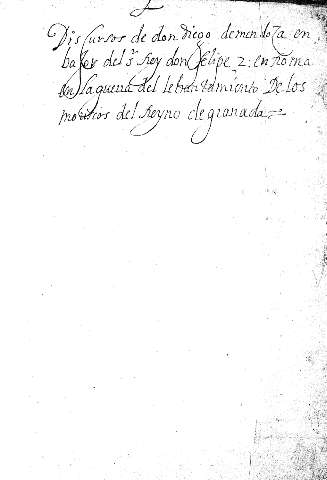 Discursos de don diego demendoza en
baxor del sr Rey don felipe 2: en roma
en la guerra del lebantamiento De los
moriscos del Reyno de granada